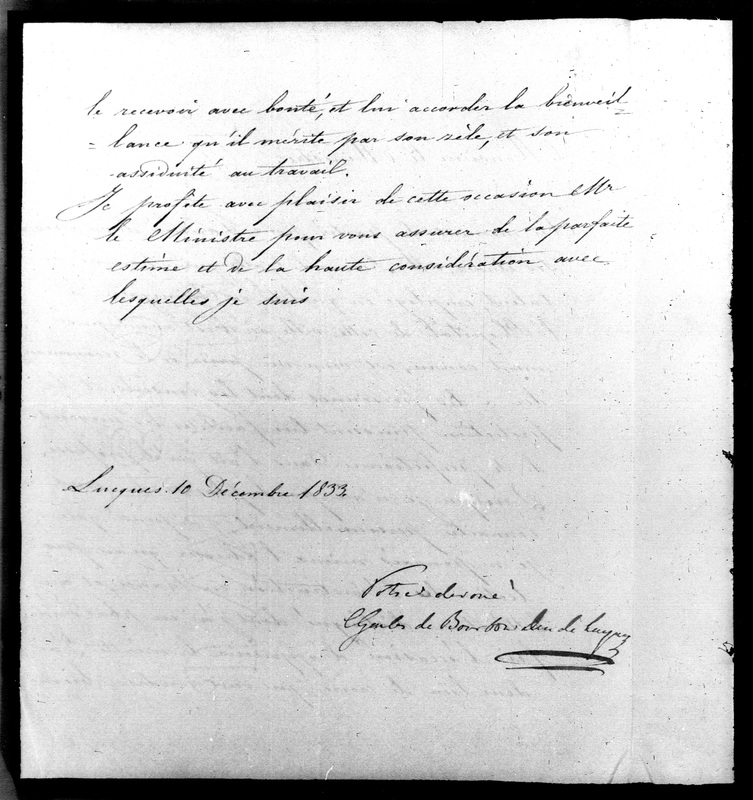 le recevoir avec bonté, et lui accorder la bienveil=
=lance qu'il mérite par son zèle, et son
assiduité au travail.
Je profite avec plaisir de cette occasion Mr
le Ministre pour vous assurer de la parfaite
estime et de la haute considération avec
lesquelles je suis
Lucques 10 Décembre 1833
Votre devoué
Charles de Bourbon Duc de Lucques